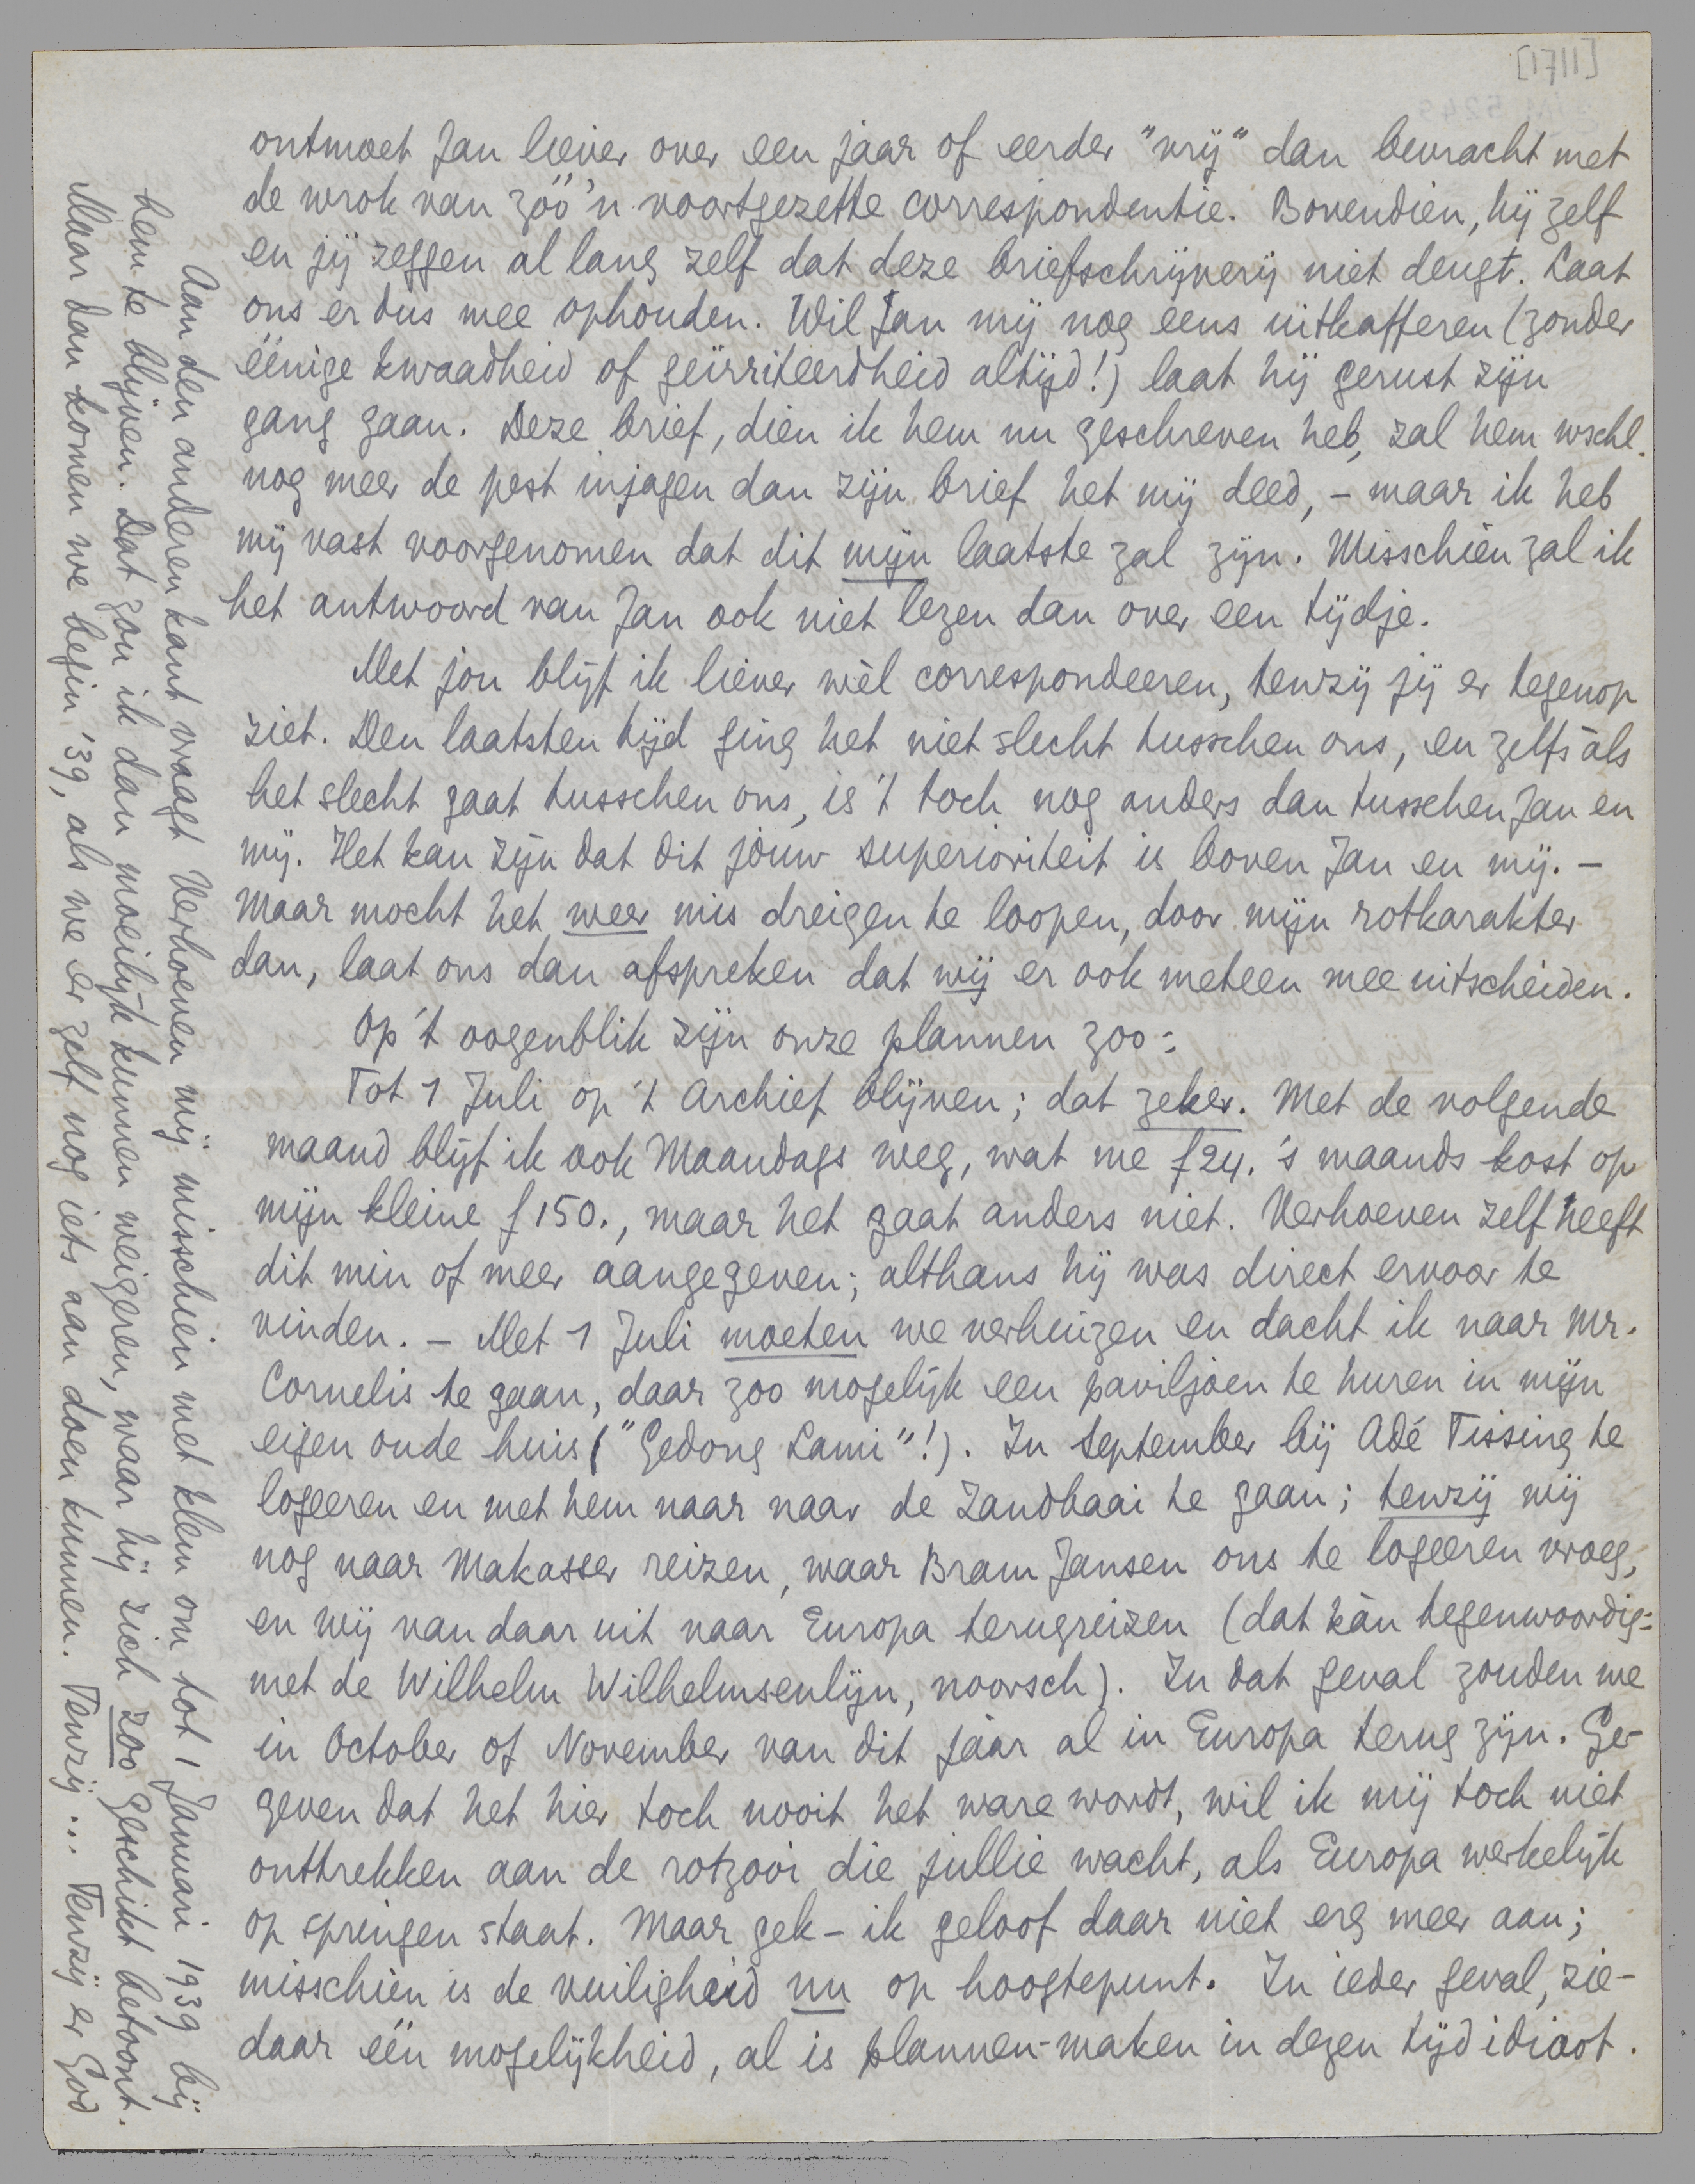 [1711]
ontmoet Jan liever over een jaar of eerder "vrij" dan bevracht met
de wrok van zóó'n voortgezette correspondentie. Bovendien, hij zelf
en jij zeggen al lang zelf dat deze briefschrijverij niet deugt. Laat
ons er dus mee ophouden. Wil Jan mij nog eens uitkafferen (zonder
éénige kwaadheid of geïrriteerdheid altijd!) laat hij gerust zijn
gang gaan. Deze brief, dien ik hem nu geschreven heb, zal hem wschl.
nog meer de pest injagen dan zijn brief het mij deed, – maar ik heb
mij vast voorgenomen dat dit mijn laatste zal zijn. Misschien zal ik
het antwoord van Jan ook niet lezen dan over een tijdje.
Met jou blijf ik liever wèl correspondeeren, tenzij jij er tegenop
ziet. Den laatsten tijd ging het niet slecht tusschen ons, en zelfs àls
het slecht gaat tusschen ons, is 't toch nog anders dan tusschen Jan en
mij. Het kan zijn dat dit jouw superioriteit is boven Jan en mij. –
Maar mocht het weer mis dreigen te loopen, door mijn rotkarakter
dan, laat ons dan afspreken dat wij er ook meteen mee uitscheiden.
Op 't oogenblik zijn onze plannen zoo:
Tot 1 Juli op 't Archief blijven; dat zeker. Met de volgende
maand blijf ik ook Maandags weg, wat me f24. 's maands kost op
mijn kleine f150., maar het gaat anders niet. Verhoeven zelf heeft
dit min of meer aangegeven; althans hij was direct ervoor te
vinden. – Met 1 Juli moeten we verhuizen en dacht ik naar Mr.
Cornelis te gaan, daar zoo mogelijk een paviljoen te huren in mijn
eigen oude huis ("Gedong Lami"!). In September bij Adé Tissing te
logeeren en met hem naar naar de Zandbaai te gaan; tenzij wij
nog naar Makasser reizen, waar Bram Jansen ons te logeeren vroeg,
en wij van daar uit naar Europa terugreizen (dat kàn tegenwoordig:
met de Wilhelm Wilhelmsenlijn, noorsch). In dat geval zouden we
in October of November van dit jáár al in Europa terug zijn. Ge-
geven dat het hier toch nooit het ware wordt, wil ik mij toch niet
onttrekken aan de rotzooi die jullie wacht, als Europa werkelijk
op springen staat. Maar gek – ik geloof daar niet erg meer aan;
misschien is de vuiligheid nu op hoogtepunt. In ieder geval, zie-
daar één mogelijkheid, al is plannen-maken in dezen tijd idioot.
Aan den anderen kant vraagt Verhoeven mij misschien met klem om tot 1 Januari 1939 bij
hem te blijven. Dat zou ik dan moeilijk kunnen weigeren, waar hij zich zoo geschikt betoont.
Maar dan komen we begin '39, als we er zelf nog iets aan doen kunnen. Tenzij ... Tenzij er God